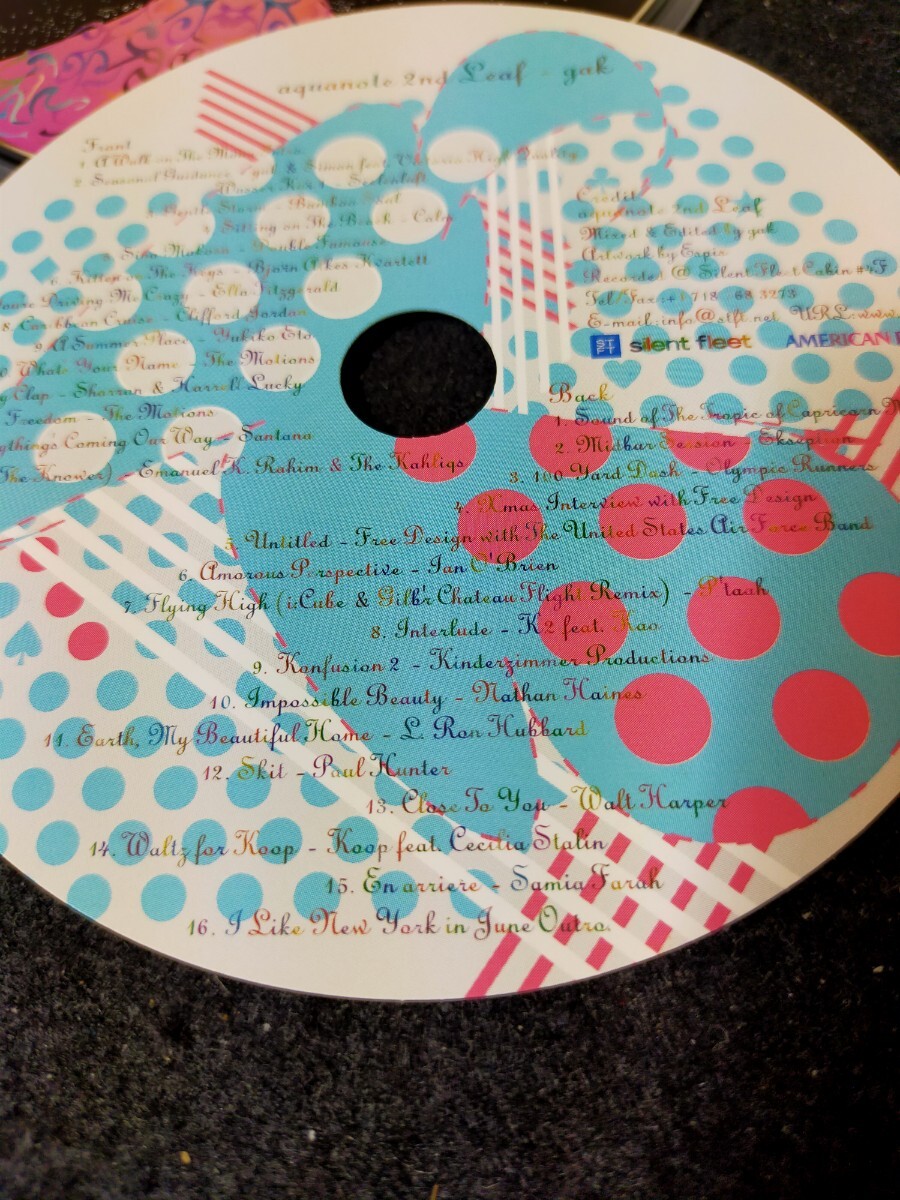 aquanote 2nd Leaf - gak
Front
1. A Walk on The
2. Seasonal Guidance - gak & Simon feat. Victoria High Quality
Wasser
Storm - Bamboo
Sitting on The Beach - Calm
Sino Makosa - Double Famouse
Kitten on The Keys - Bjorn J:son Kvartett
Driving Me Crazy - Ella Fitzgerald
8. Caribbean Cruise - Clifford Jordan
9. A Summer Place - Yukiko Eto
Whats Your Name - The Motions
Clap - Sharran & Harrell Lucky
Freedom - The Motions
ything's Coming Our Way - Santana
The Knower) - Emanuel K. Rahim & The Kahliqs
Credit
aquanote 2nd Leaf
Mixed & Edited by gak
Artwork by Espis
Recorded @ Silent Fleet Cabin #4F
Tel/Fax:+1 718 68 3273
E-mail:info@stft.net URL:www.
ST
FT
silent fleet
AMERICAN
Back
1. Sound of The Tropic of Capricorn
2. Midbar Session - Ekseption
3. 100 Yard Dash - Olympic Runners
4. Xmas Interview with Free Design
5. Untitled - Free Design with The United States Air Force Band
6. Amorous P rspective - Ian O'Brien
7. Flying High (i:Cube & Gilb'r Chateau Flight Remix) - P'taah
8. Interlude - K2 feat. Kao
9. Konfusion 2 - Kinderzimmer Productions
10. Impossible Beauty - Nathan Haines
11. Earth, My Beautiful Home - L. Ron Hubbard
12. Skit - Paul Hunter
13. Close To You - Walt Harper
14. Waltz for Koop - Koop feat. Cecilia Stalin
15. En arriere - Samia Farah
16. I Like New York in June Outro.